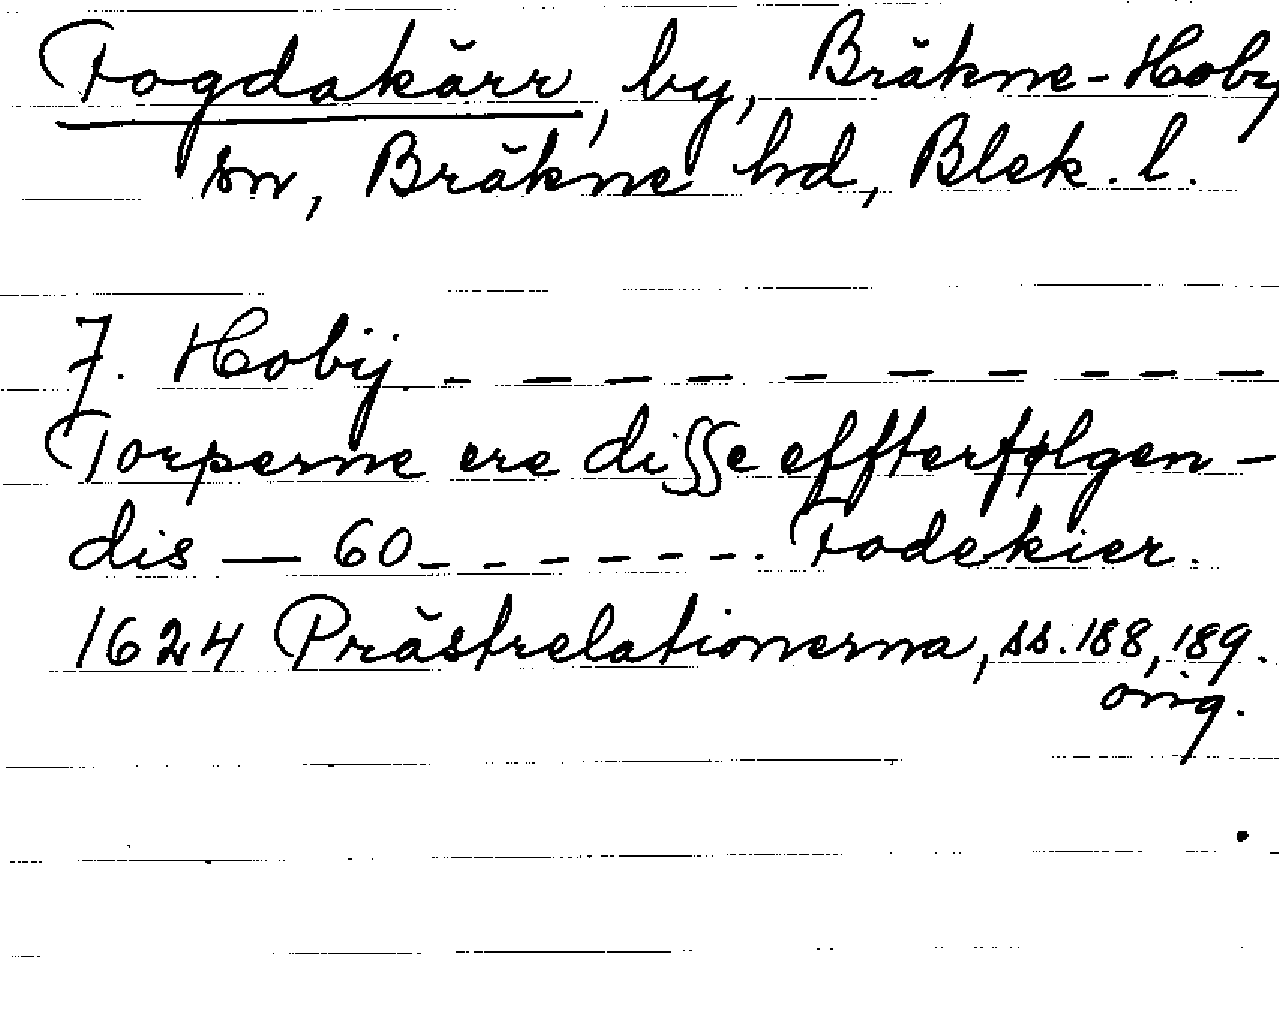 Fogdakärr, by, Bräkne-Hoby
sn, Bräkne hd, Blek. l.
J. Hobij - - - - - - - - - -
Torperne ere disse effterfølgen-
dis — 60 - - - - - - - Fodekier.
1624 Prästrelationerna, ss. 188, 189.
orig.